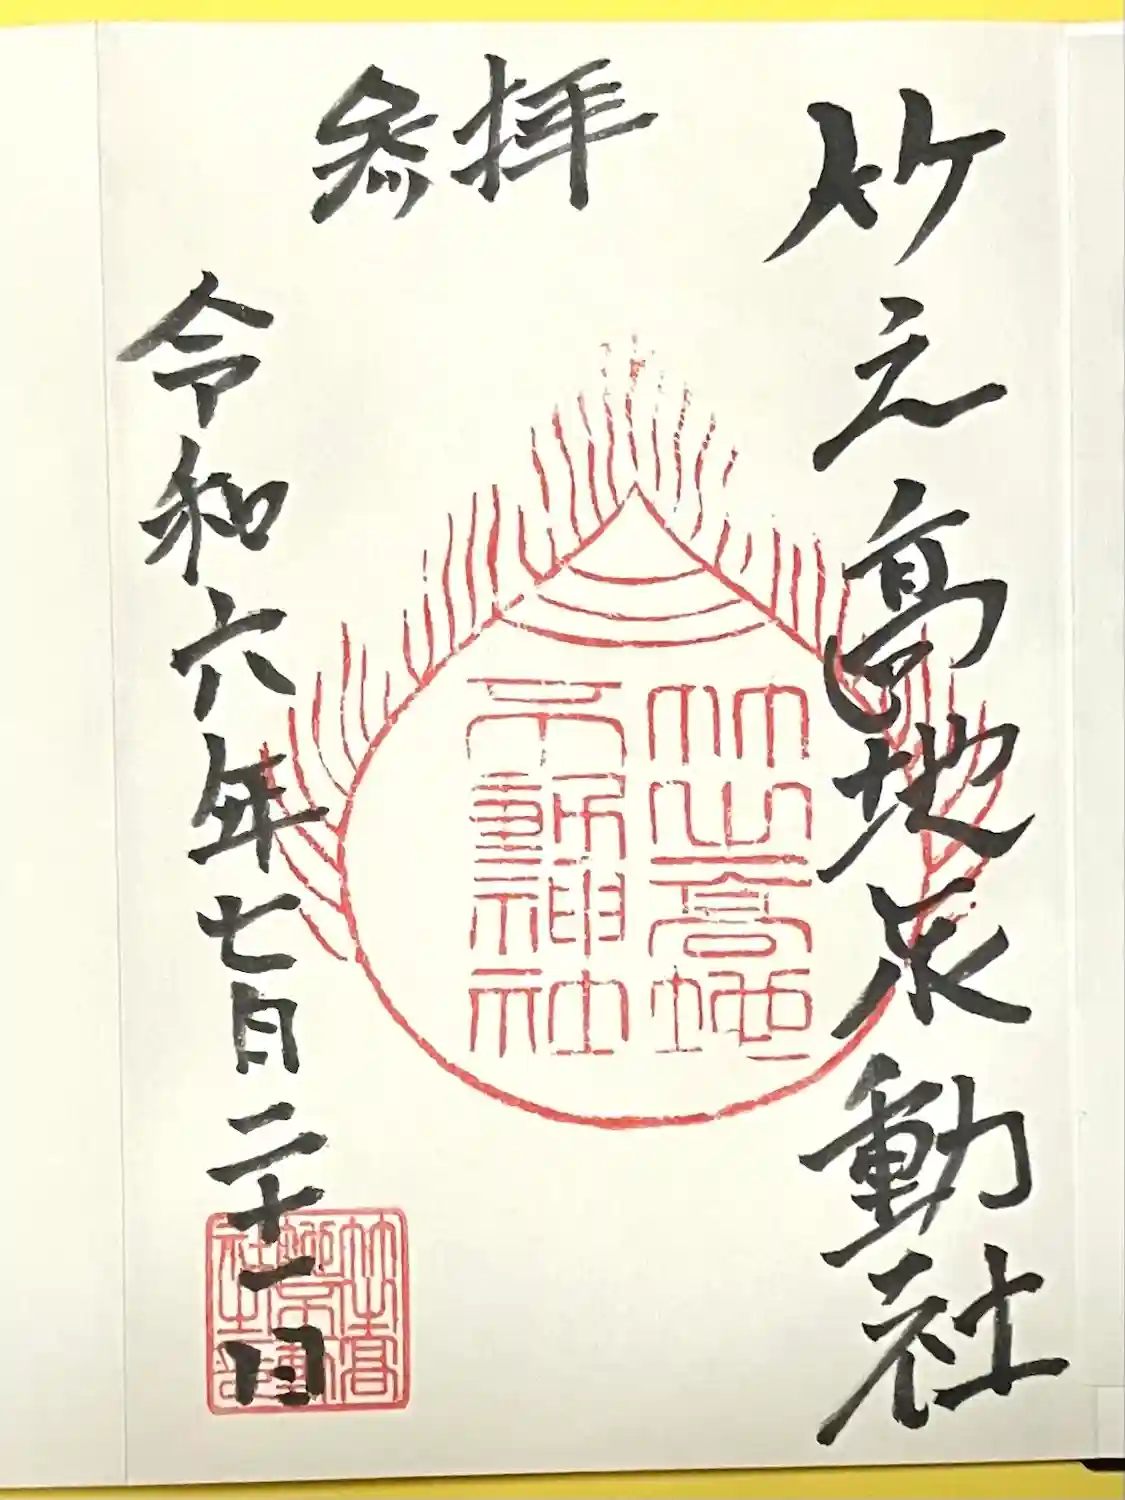 竹之高地不動社
参拝
竹之高地
不動神社
令和六年七月二十一日
竹之高
地不動
社之